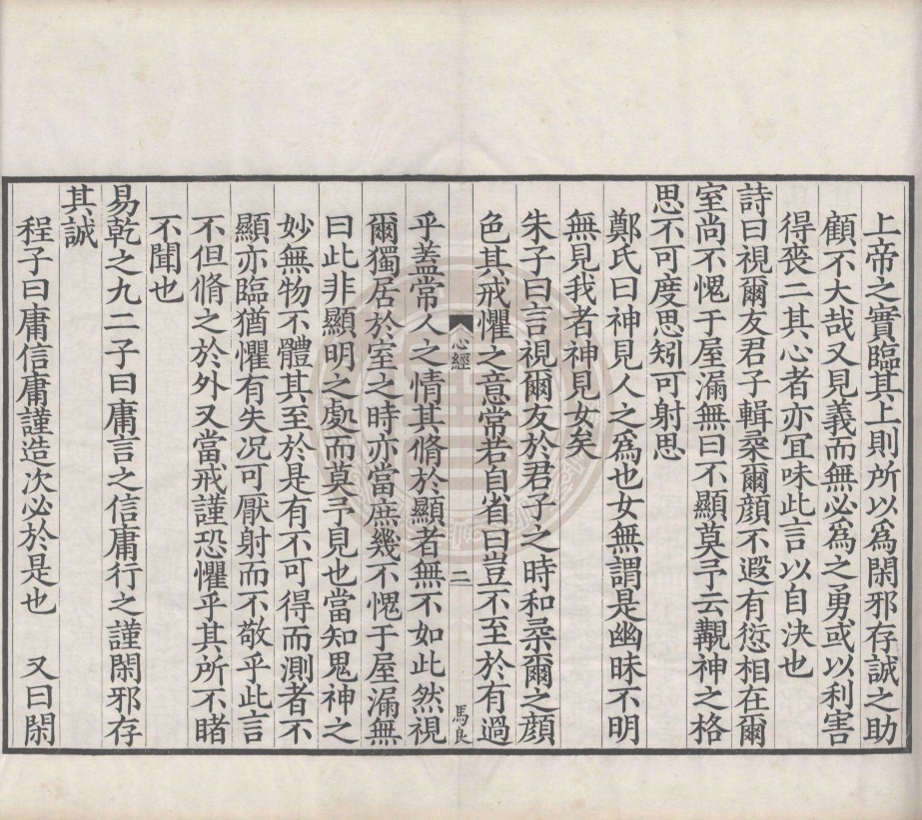 上帝之實臨其上則所以爲閑邪存誠之助
顧不大哉又見義而無必爲之勇或以利害
得喪二其心者亦冝味此言以自决也
詩曰視爾友君子輯柔爾顔不遐有愆相在爾
室尚不愧于屋漏無曰不顯莫予云覯神之格
思不可度思矧可射思
鄭氏曰神見人之爲也女無謂是幽昧不明
無見我者神見女矣
朱子曰言視爾友於君子之時和柔爾之顔
色其戒懼之意常若自省曰豈不至於有過
心經
二
馬良
乎蓋常人之情其脩於顯者無不如此然視
爾獨居於室之時亦當庶幾不愧于屋漏無
曰此非顯明之處而莫予見也當知鬼神之
妙無物不體其至於是有不可得而測者不
顯亦臨猶懼有失况可厭射而不敬乎此言
不但脩之於外又當戒謹恐懼乎其所不睹
不聞也
易乾之九二子曰庸言之信庸行之謹閑邪存
其誠
程子曰庸信庸謹造次必於是也 又曰閑